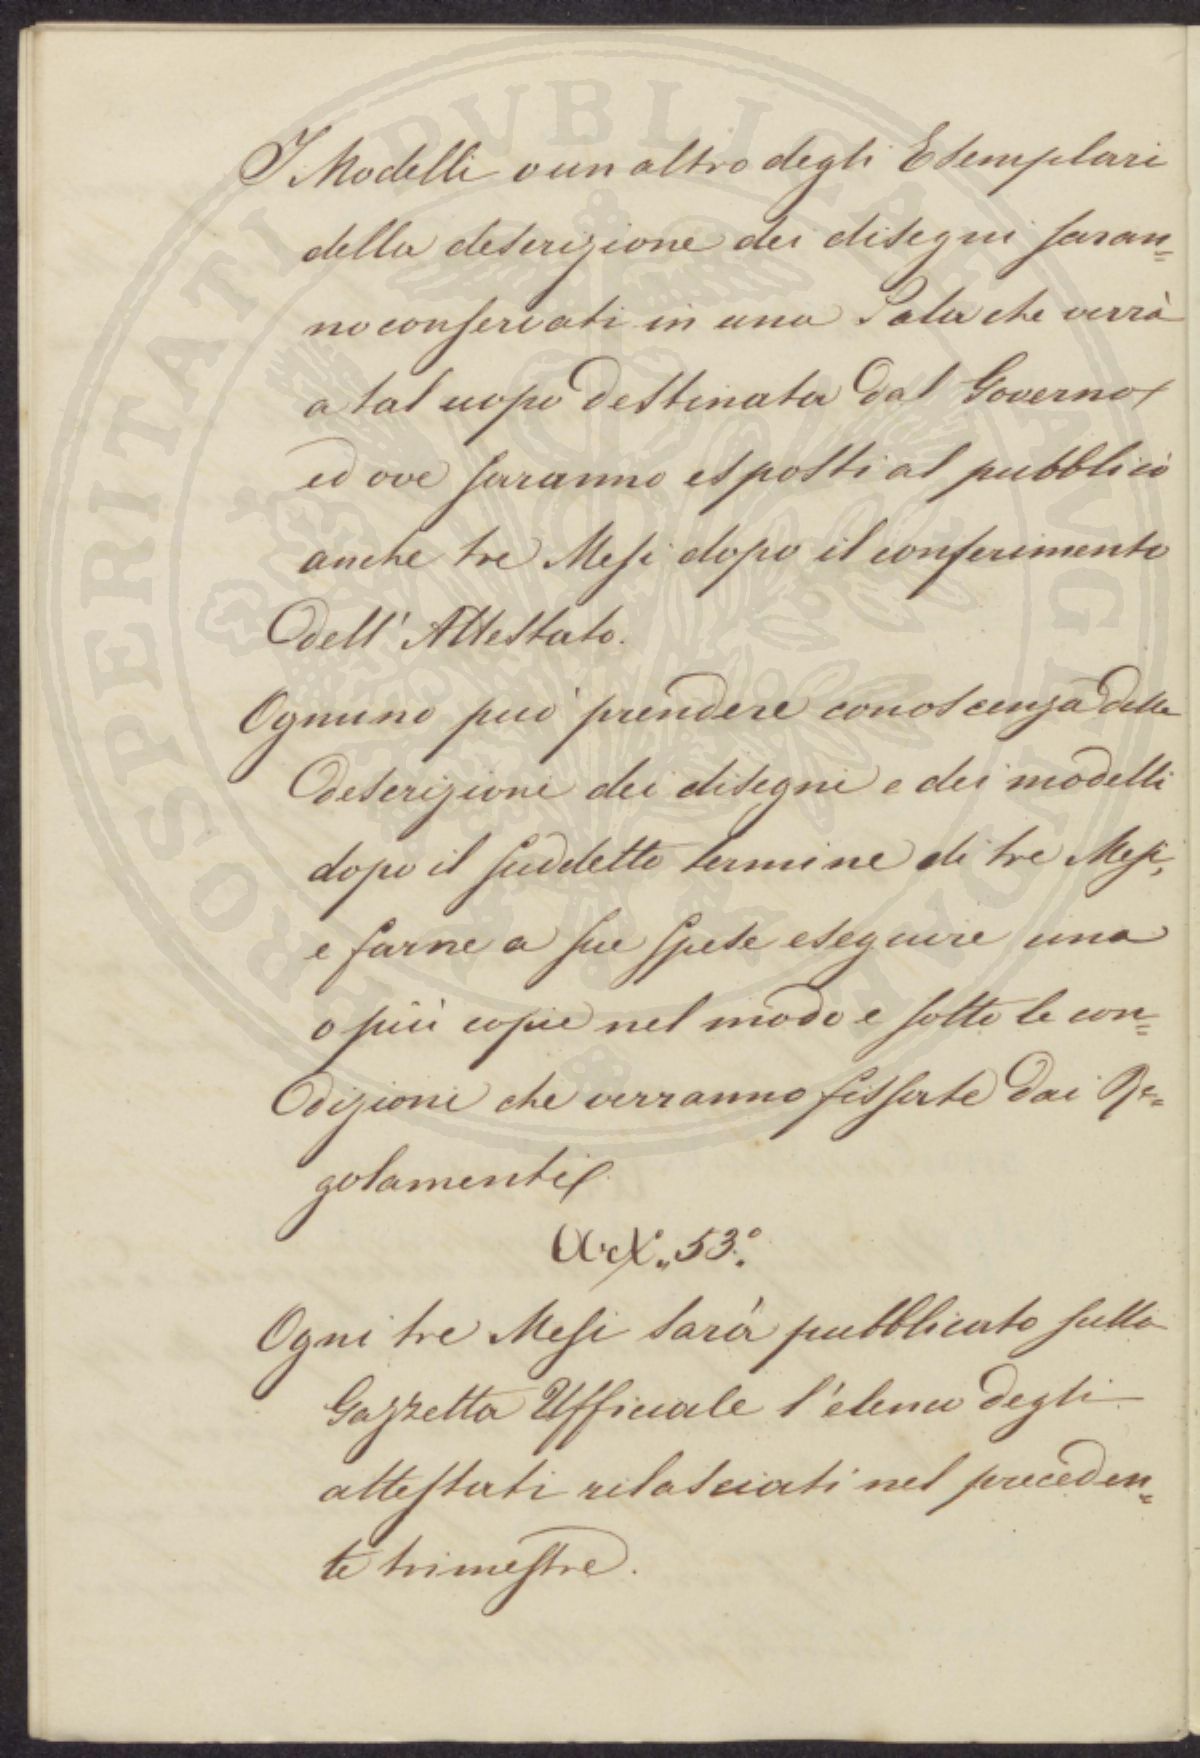 I Modelli o un altro degli Esemplari
della descrizione dei disegni saran=
no conservati in una Sala che verrà
a tal uopo destinata dal Governo
ed ove saranno esposti al pubblico
anche tre Mesi dopo il conferimento
dell' Attestato.
Ognuno può prendere conoscenza delle
descrizioni dei disegni e dei modelli
dopo il suddetto termine di tre Mesi,
e farne a sue spese eseguire una
o più copie nel modo e sotto le con=
dizioni che verranno fissate dai Re=
golamenti
Art.° 53.°
Ogni tre Mesi sarà pubblicato sulla
Gazzetta Ufficiale l'elenco degli
attestati rilasciati nel preceden=
te trimestre.